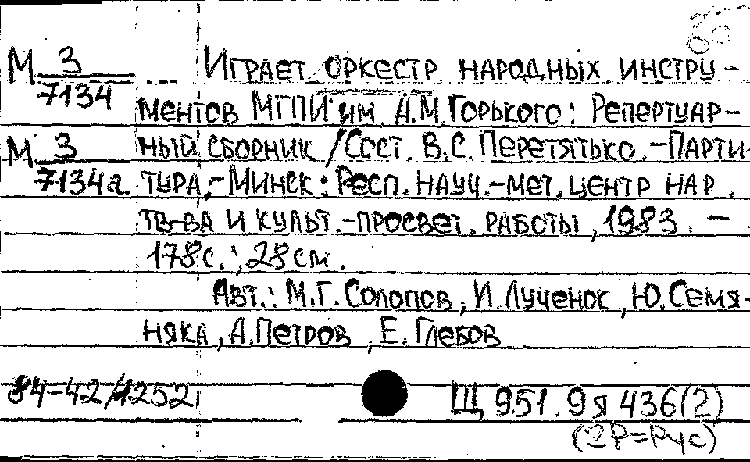 М 3/7134 ... Играет оркестр народных инстру-
ментов МГПИ им. А.М.Горького: Репертуар-
М 3/7134а ный сборник /Сост. В.С. Перетятько.-Парти-
тура.-Минск: Респ. науч.-мет. центр нар.
тв-ва и культ.-просвет. работы, 1983. —
178с.; 28см.
Авт.: М.Г. Солопов, И.Лученок, Ю.Семя-
няка, А.Петров, Е. Глебов
84-42/1252 Щ 951.9я436(2)
(2Р=Рус)